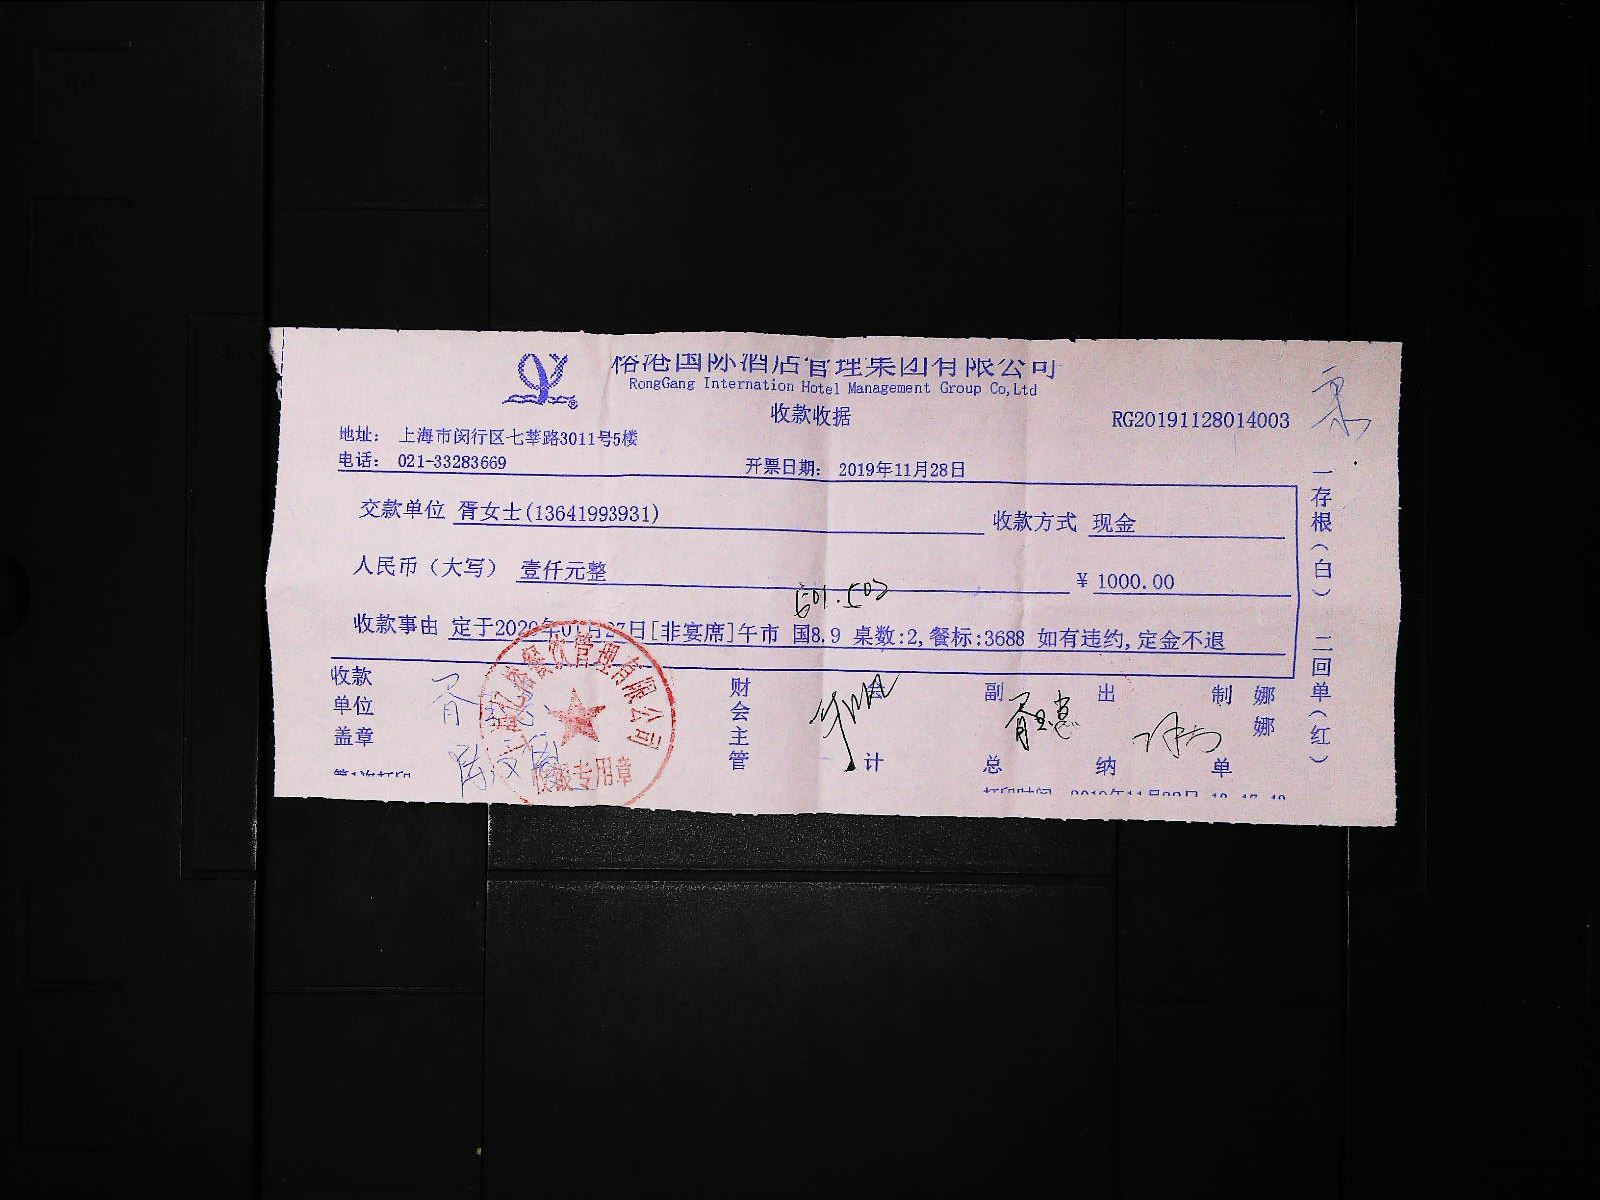 裕港国际酒店管理集团有限公司
RongGang Internation Hotel Management Group Co,Ltd
收款收据
RG20191128014003
地址： 上海市闵行区七莘路3011号5楼
电话： 021-33283669
开票日期： 2019年11月28日
交款单位 胥女士(13641993931)
收款方式 现金
人民币（大写） 壹仟元整
¥ 1000.00
501.502
收款事由 定于2020年01月27日[非宴席]午市 国8.9 桌数:2,餐标:3688 如有违约,定金不退
收款单位盖章
财会主管
会计
副总
出纳
制单
娜娜
一存根（白） 二回单（红）
餐饮管理有限公司
专用章
第1次打印
打印时间